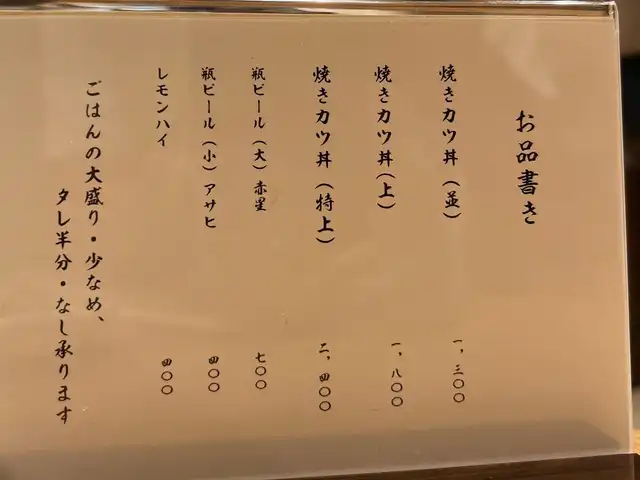 お品書き
焼きカツ丼（並） 一，三〇〇
焼きカツ丼（上） 一，八〇〇
焼きカツ丼（特上） 二，四〇〇
瓶ビール（大）赤星 七〇〇
瓶ビール（小）アサヒ 四〇〇
レモンハイ 四〇〇
ごはんの大盛り・少なめ、
タレ半分・なし承ります